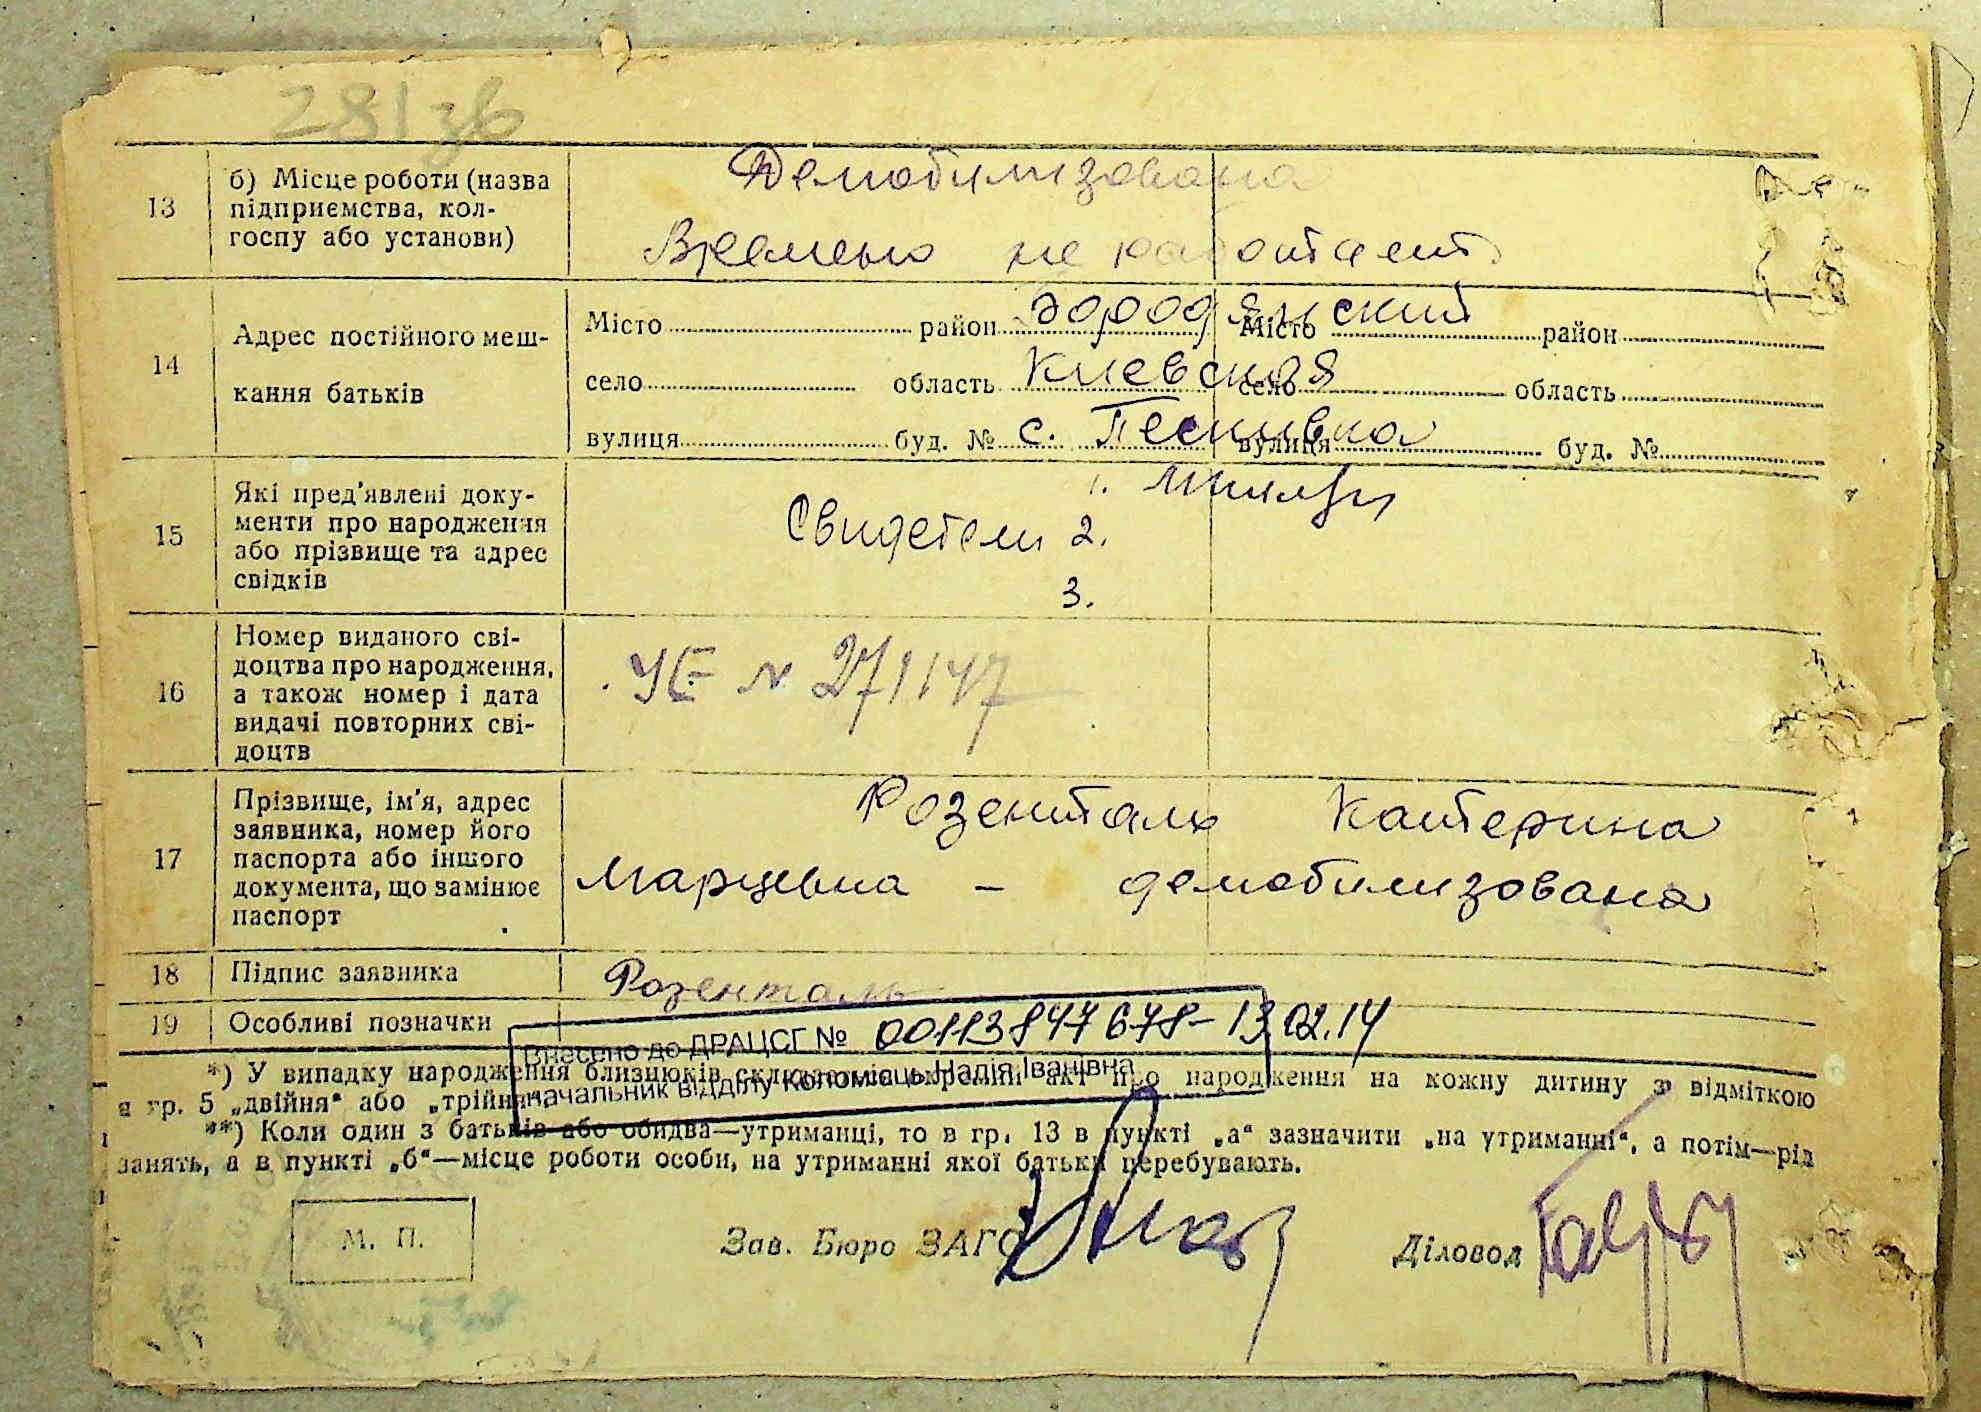 281зв
13 б) Місце роботи (назва підприємства, колгоспу або установи)
Демобилизована
Времено не работает
14 Адрес постійного мешкання батьків
Місто район Бородянский Місто район
село область Киевская село область
вулиця буд. № с. Пескивка вулиця буд. №
15 Які пред'явлені документи про народження або прізвище та адрес свідків
1.
Свидетели 2.
3.
16 Номер виданого свідоцтва про народження, а також номер і дата видачі повторних свідоцтв
УЕ N 271147
17 Прізвище, ім'я, адрес заявника, номер його паспорта або іншого документа, що замінює паспорт
Розенталь Катерина
Марцевна – демобилизована
18 Підпис заявника
Розенталь
19 Особливі позначки
Внесено до ДРАЦСГ № 00113847678-13.02.14
начальник відділу Коломієць Надія Іванівна
*) У випадку народження близнюків складається окремий акт про народження на кожну дитину з відміткою
в гр. 5 „двійня" або „трійня".
**) Коли один з батьків або обидва—утриманці, то в гр. 13 в пункті „а" зазначити „на утриманні", а потім—рід
занять, а в пункті „б"—місце роботи особи, на утриманні якої батьки перебувають.
М. П.
Зав. Бюро ЗАГС
Діловод